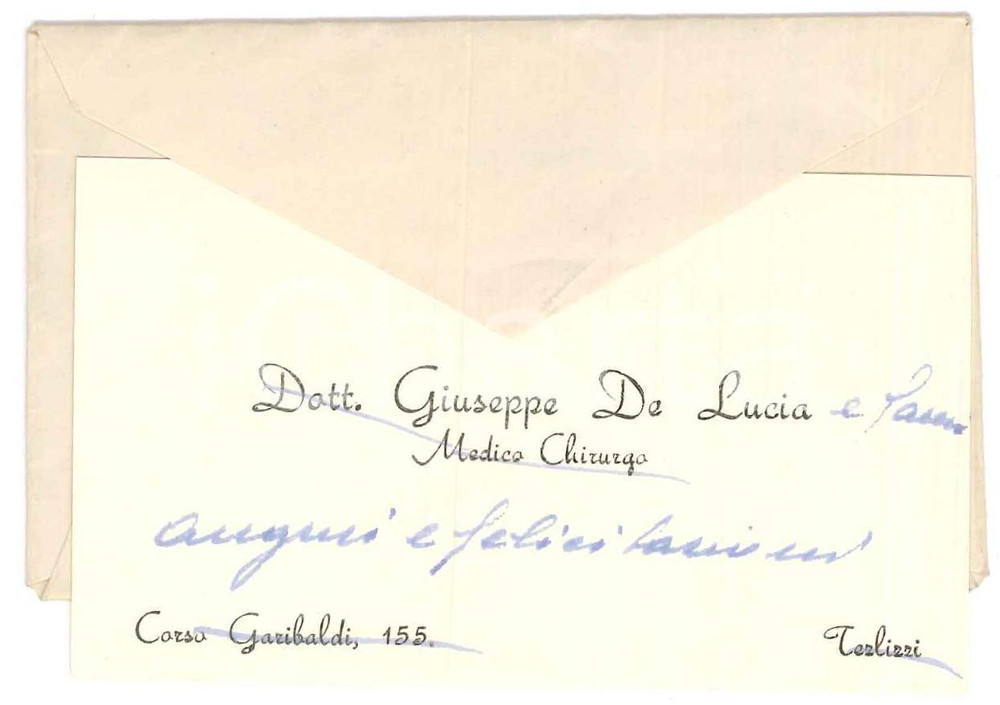 Dott. Giuseppe De Lucia e
Medico Chirurgo
auguri e felicitazioni
Corso Garibaldi, 155.
Terlizzi